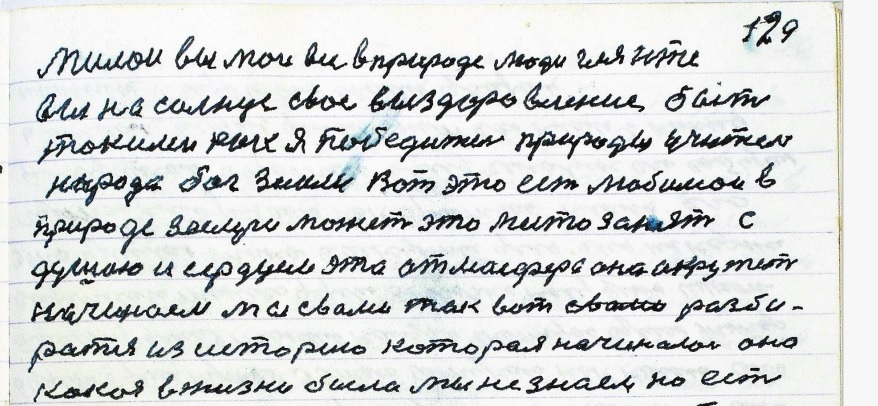 129
милои вы мои вы в природе люди гляньте
вы на солнце свое выздоровление, быть
такими как я победител природы учител
народа бог земли Вот это ест любимои в
природе заслуги может это место занят с
душою и сердцем эта атмасфера она окружает
начинаем мы свами так вот свами разби-
ратя из историю которая началас она
какоя в жизни была мы не знаем, но ест